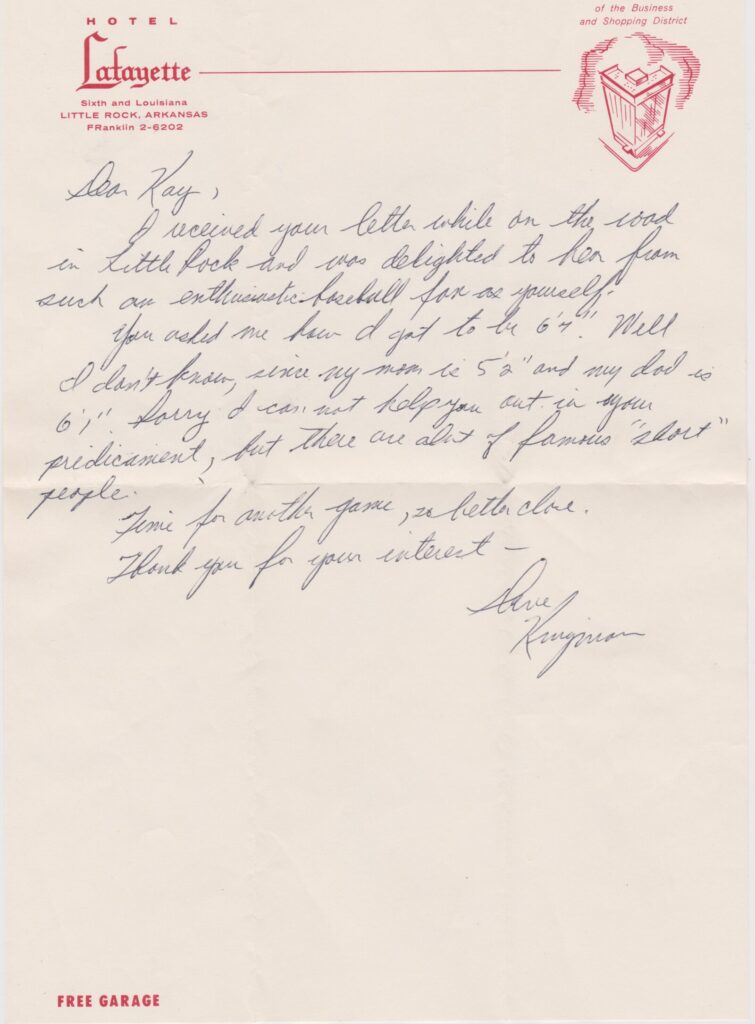 HOTEL
Lafayette
Sixth and Louisiana
LITTLE ROCK, ARKANSAS
FRanklin 2-6202
of the Business
and Shopping District
Dear Kay,
I received your letter while on the road
in Little Rock and was delighted to hear from
such an enthusiastic baseball fan as yourself.
You asked me how I got to be 6'7". Well
I don't know, since my mom is 5'2" and my dad is
6'1". Sorry I can not help you out in your
predicament, but there are alot of famous "short"
people.
Time for another game, so better close.
Thank you for your interest —
Dave
Kingman
FREE GARAGE